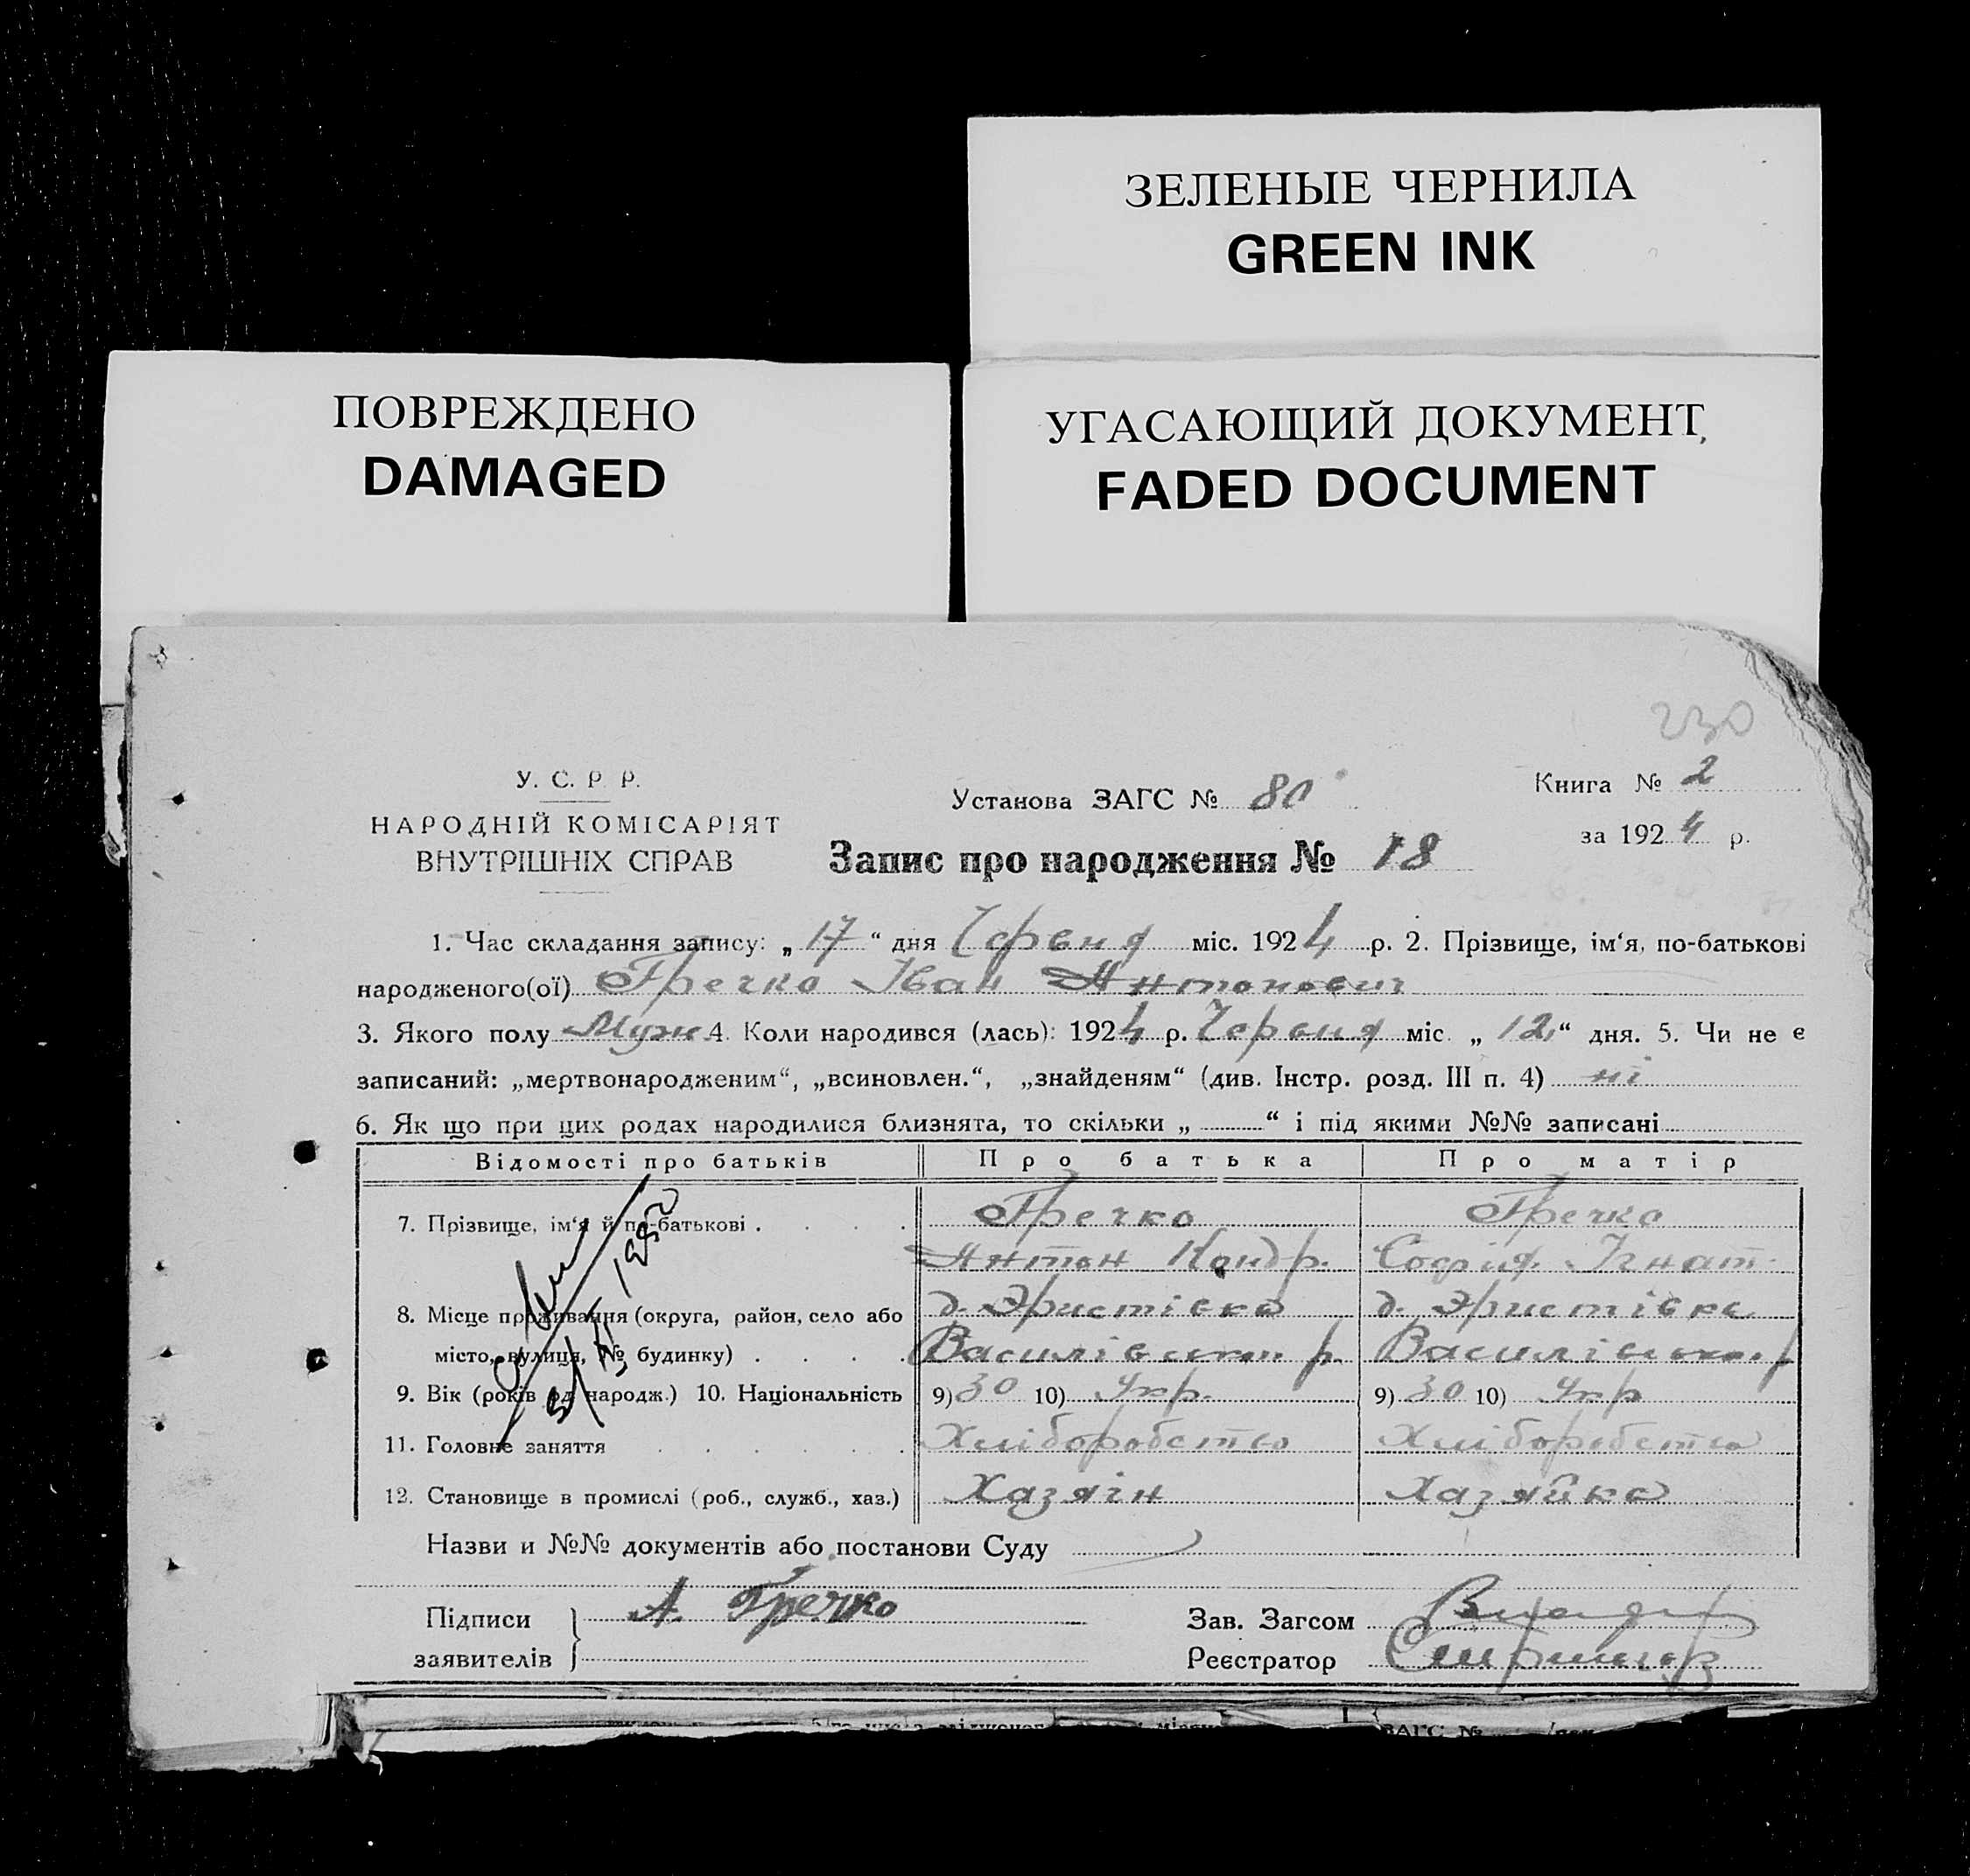 ЗЕЛЕНЫЕ ЧЕРНИЛА
GREEN INK
ПОВРЕЖДЕНО
DAMAGED
УГАСАЮЩИЙ ДОКУМЕНТ
FADED DOCUMENT
230
У. С. Р. Р.
НАРОДНІЙ КОМІСАРІЯТ
ВНУТРІШНІХ СПРАВ
Установа ЗАГС № 80
Книга № 2
за 1924 р.
Запис про народження № 18
1. Час складання запису: „17“ дня Червня міс. 1924 р. 2. Прізвище, ім‘я, по-батькові
народженого(ої) Гречко Іван Антонович
3. Якого полу Муж. 4. Коли народився (лась): 1924 р. Червня міс. „12“ дня. 5. Чи не є
записаний: „мертвонародженим“, „всиновлен.“, „знайденям“ (див. Інстр. розд. III п. 4) ні
6. Як що при цих родах народилися близнята, то скільки „ “ і під якими №№ записані
Відомості про батьків Про батька Про матір
7. Прізвище, ім‘я й по-батькові . Гречко Гречко
Антон Кондр. Софія Ігнат.
8. Місце проживання (округа, район, село або д. Эристівка д. Эристівка
місто, вулиця, № будинку) Василівськ. р. Василівськ. р
9. Вік (років од народж.) 10. Національність 9) 30 10) Укр. 9) 30 10) Укр
11. Головне заняття Хліборобство Хліборобство
12. Становище в промислі (роб., служб., хаз.) Хазяін Хазяйка
Назви и №№ документів або постанови Суду
Підписи А. Гречко Зав. Загсом
заявителів Реєстратор
ЗАГС №